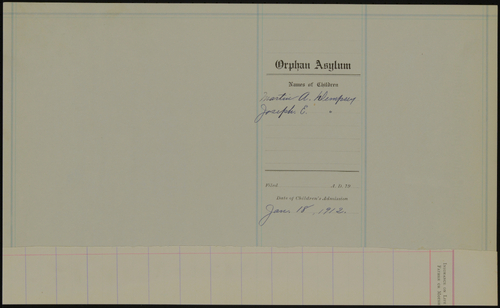 Orphan Asylum
Names of Children
Martin A. Dempsey
Joseph E. "
Filed A. D. 19
Date of Children's Admission
Jan. 18, 1912